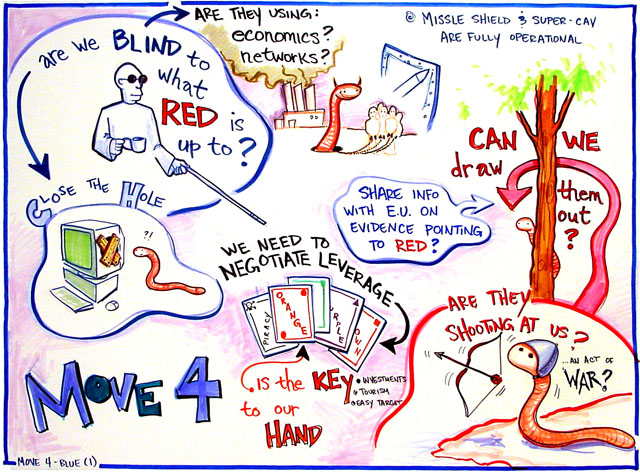 are we BLIND to
what
RED is
up to?
ARE THEY USING:
economics?
networks?
@ MISSLE SHIELD & SUPER-CAV
ARE FULLY OPERATIONAL
CLOSE THE HOLE
?!
SHARE INFO
WITH E.U. ON
EVIDENCE POINTING
TO RED?
CAN WE
draw them
out
?
WE NEED TO
NEGOTIATE LEVERAGE
PIRACY
ORANGE
URPLE
OWN
IS the KEY
to our
HAND
• INVESTMENTS
• TOURISM
• EASY TARGET
ARE THEY
SHOOTING AT US?
...AN ACT OF
WAR?
MOVE 4
MOVE 4 - BLUE (1)